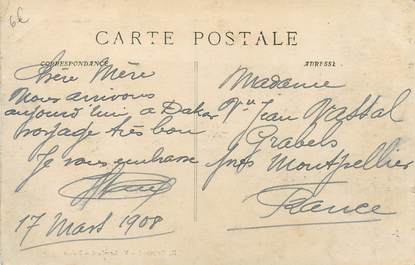 6€
CARTE POSTALE
CORRESPONDANCE
Chère Mère
Nous arrivons
aujourd'hui a Dakar
voyage très bon
Je vous embrasse
17 Mars 1908
ADRESSE
Madame
Vve Jean Vassal
Grabels
près Montpellier
France